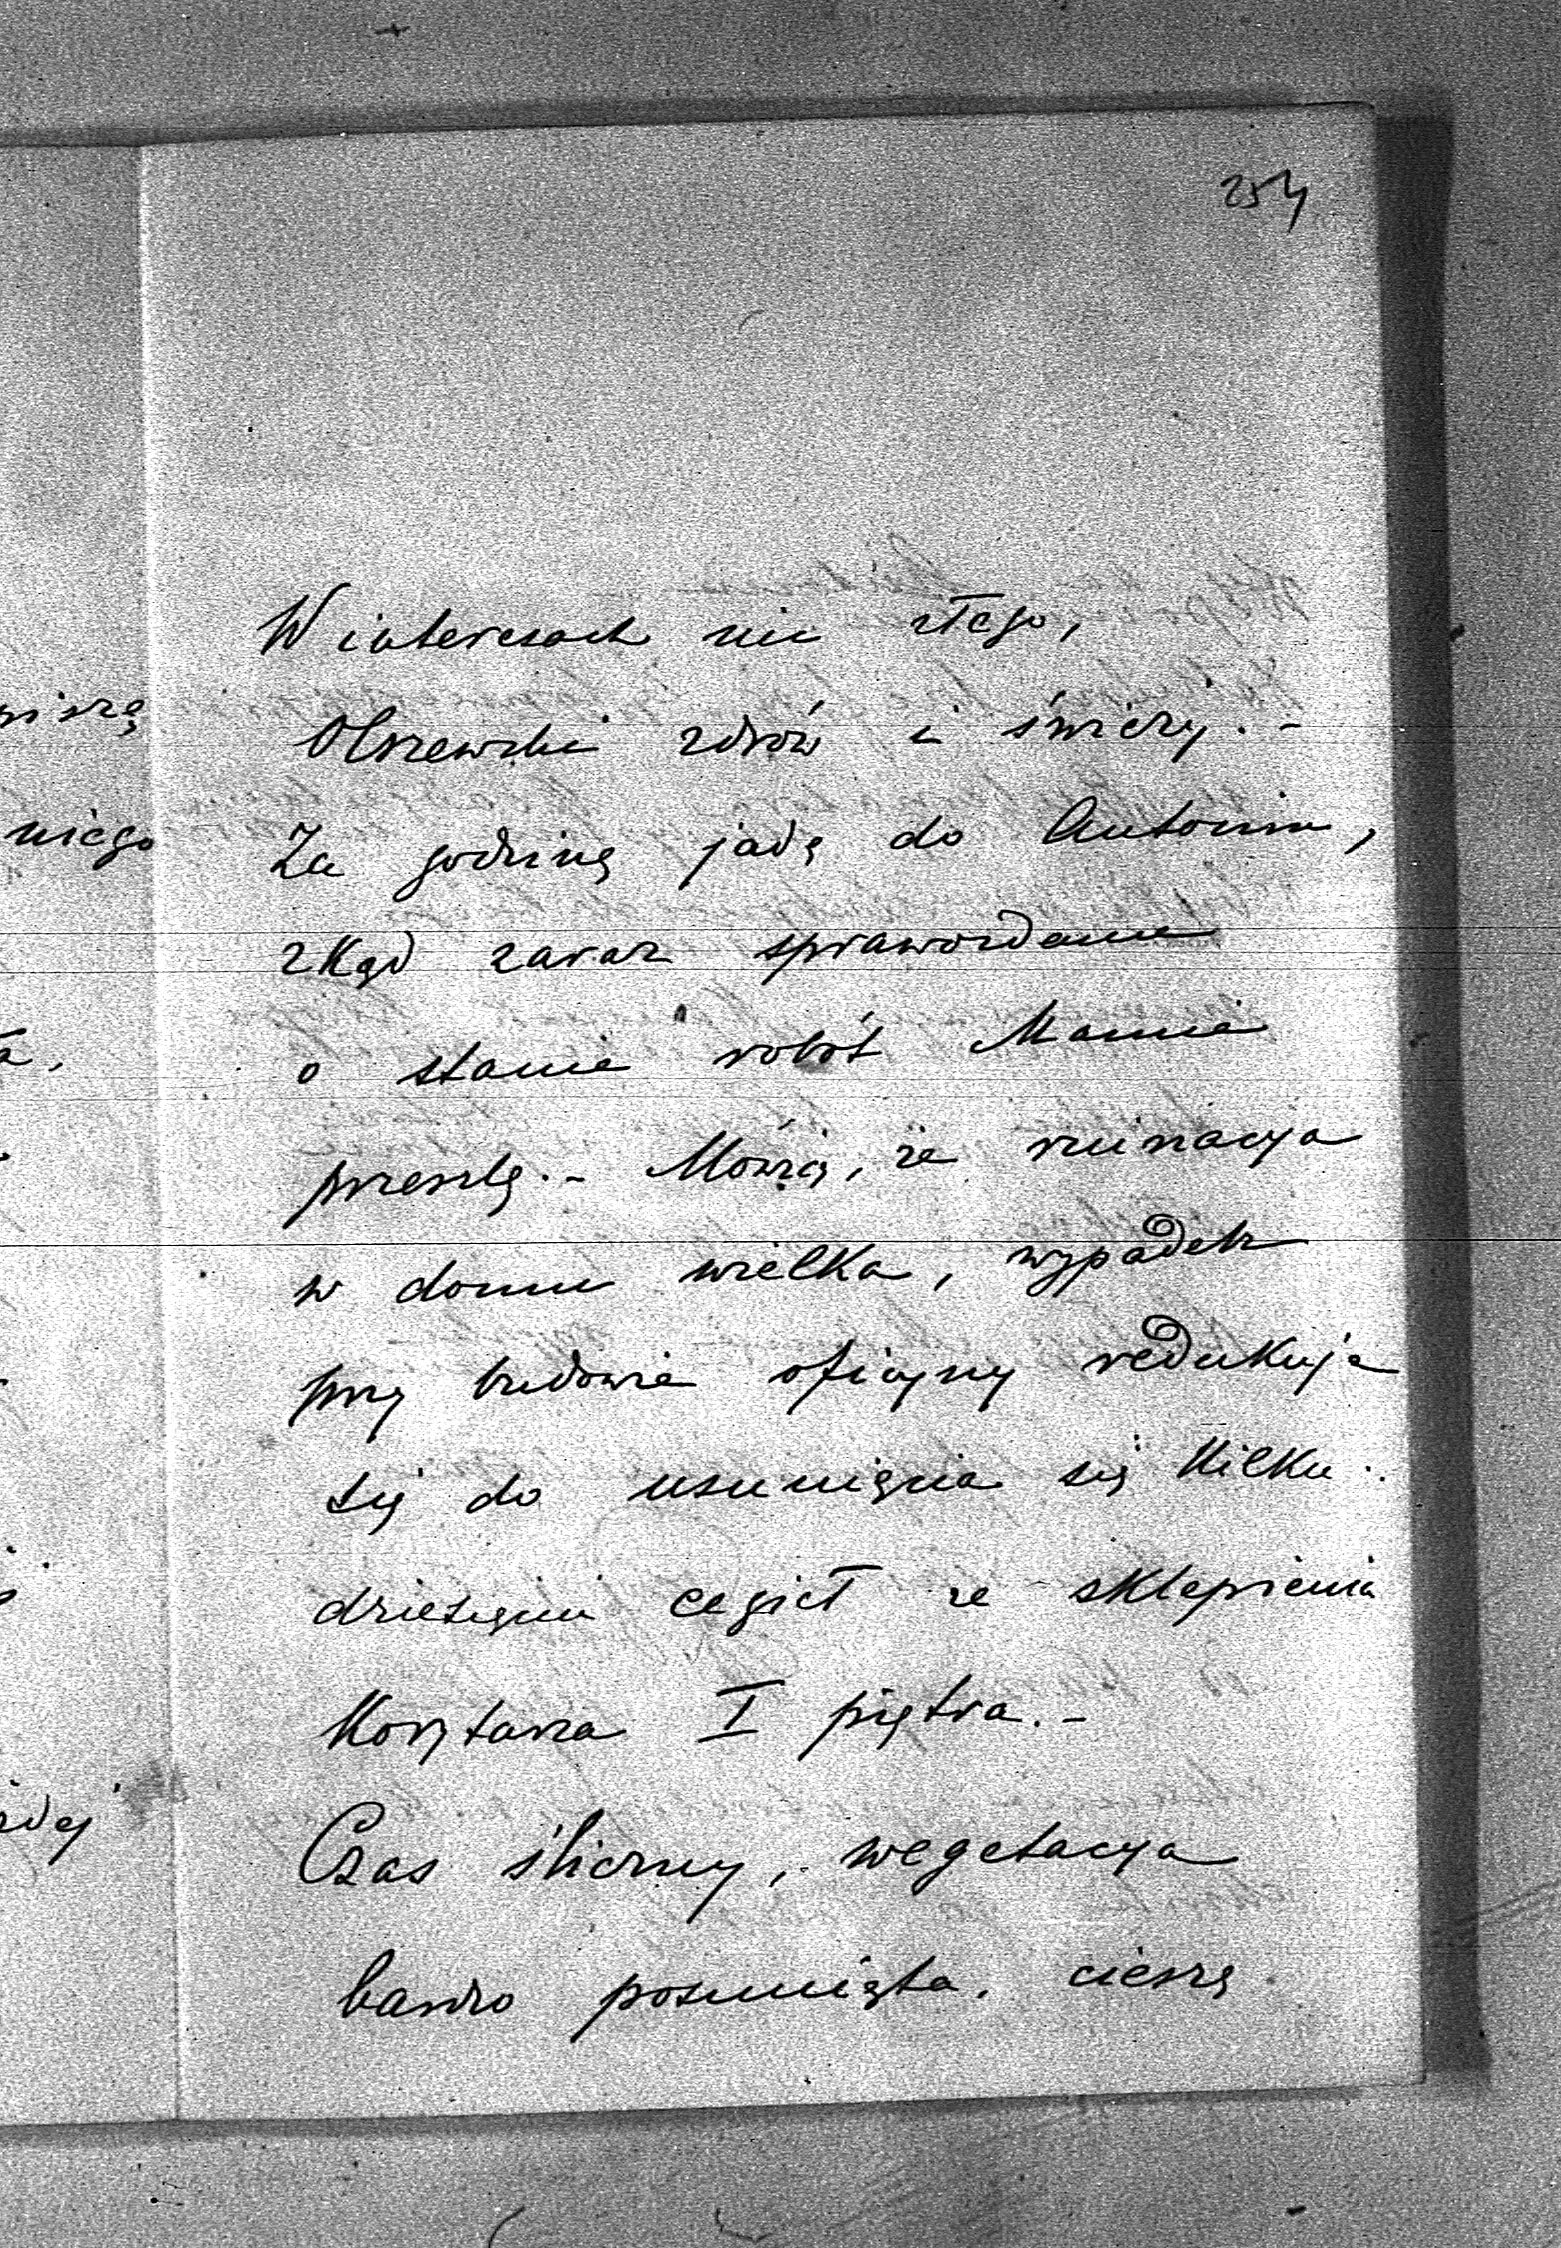 254
W interesach nic złego,
Olszewski zdrów i świeży. -
Za godzinę jadę do Antonin,
zkąd zaraz sprawozdanie
o stanie robót Mamie
przeszlę. - Mówią, że ruinacya
w domu wielka, wypadek
przy budowie oficyny redukuje
się do usunięcia się kilku..
dziesięciu cegieł ze sklepienia
Korytarza I piętra. -
Czas śliczny, wegetacya
bardzo posunięta, cieszę
niego